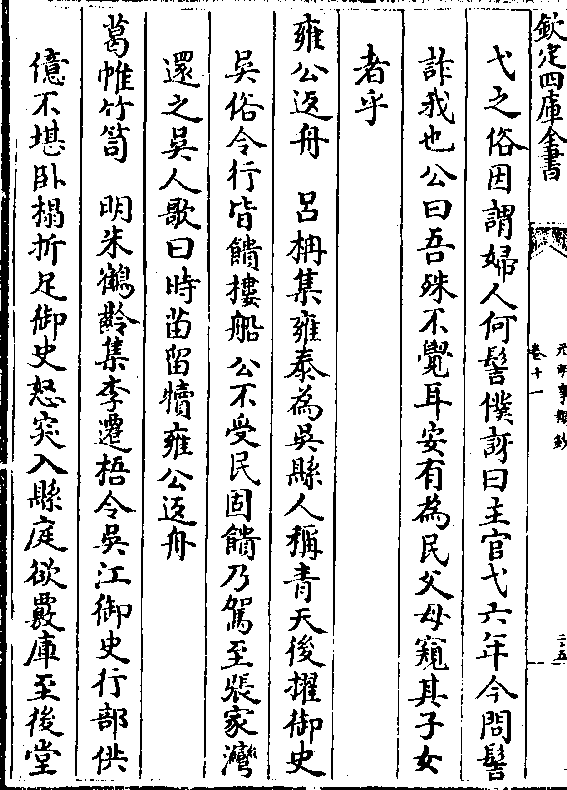 欽定四庫全書
元明事類鈔
卷十一
二五
弋之俗因謂婦人何髻僕訝曰主官弋六年今問髻
詐我也公曰吾殊不覺耳安有為民父母窺其子女
者乎
雍公返舟　呂柟集雍泰為吳縣人稱青天後擢御史
吳俗令行皆饋樓船公不受民固饋乃駕至張家灣
還之吳人歌曰時苗留犢雍公返舟
葛帷竹笥　明朱鶴齡集李遷梧令吳江御史行部供
億不堪卧榻折足御史怒突入縣庭欲覈庫至後堂